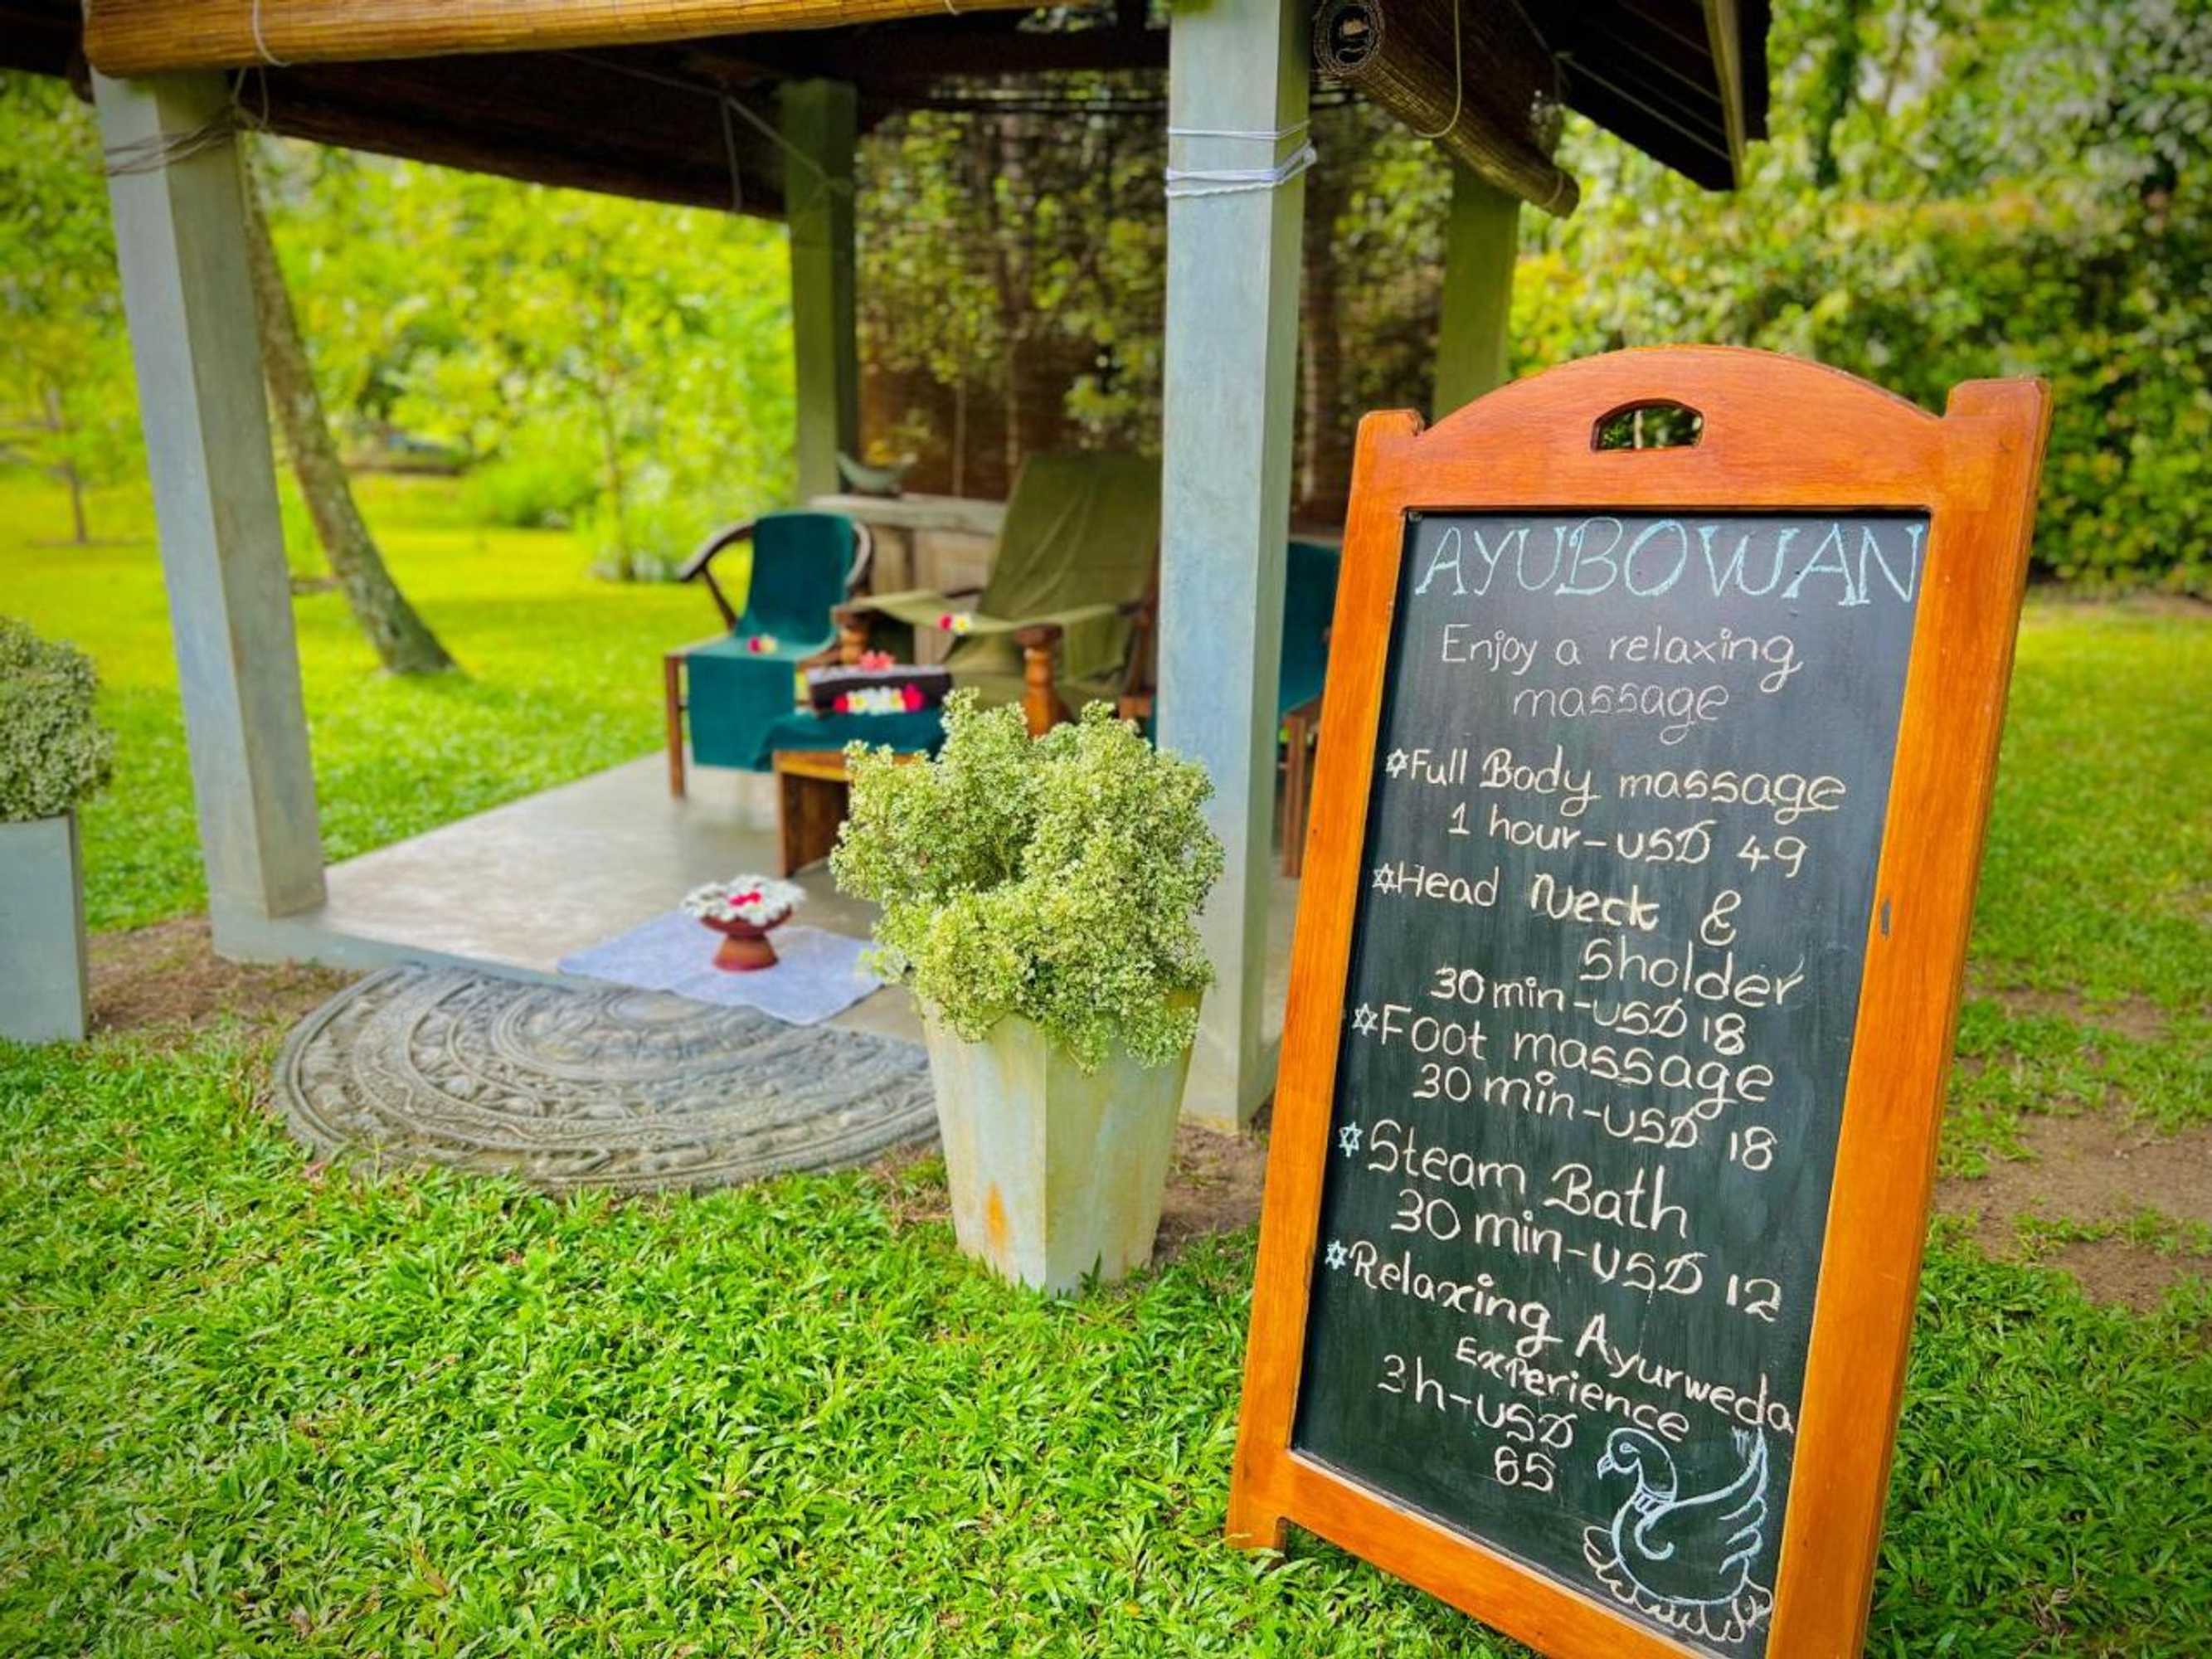 AYUBOWAN
Enjoy a relaxing
massage
✡Full Body massage
1 hour-USD 49
✡Head Neck &
Sholder
30 min-USD 18
✡Foot massage
30 min-USD 18
✡Steam Bath
30 min-USD 12
✡Relaxing Ayurweda
ExPerience
3h-USD
65